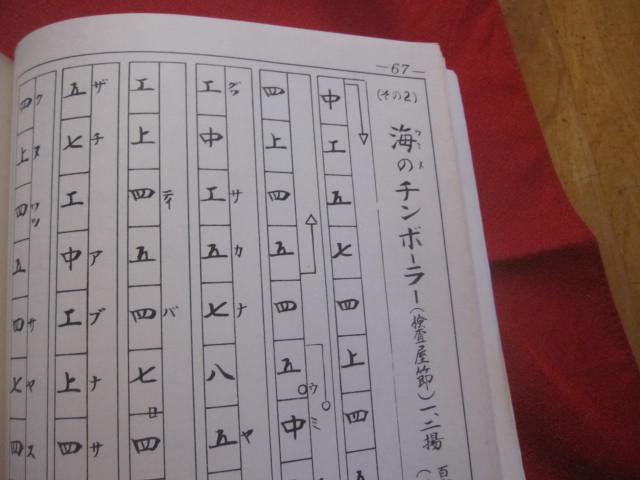 —67—
(その2)
海のチンボーラー(検査屋節)一、二揚
中工五七四上四
四上四五四五中
ウミ
工中工五七八五
サカナヤ
工上四五四七四
ティバ
五七工中工上四
ザチアブナサ
四上四五四七四